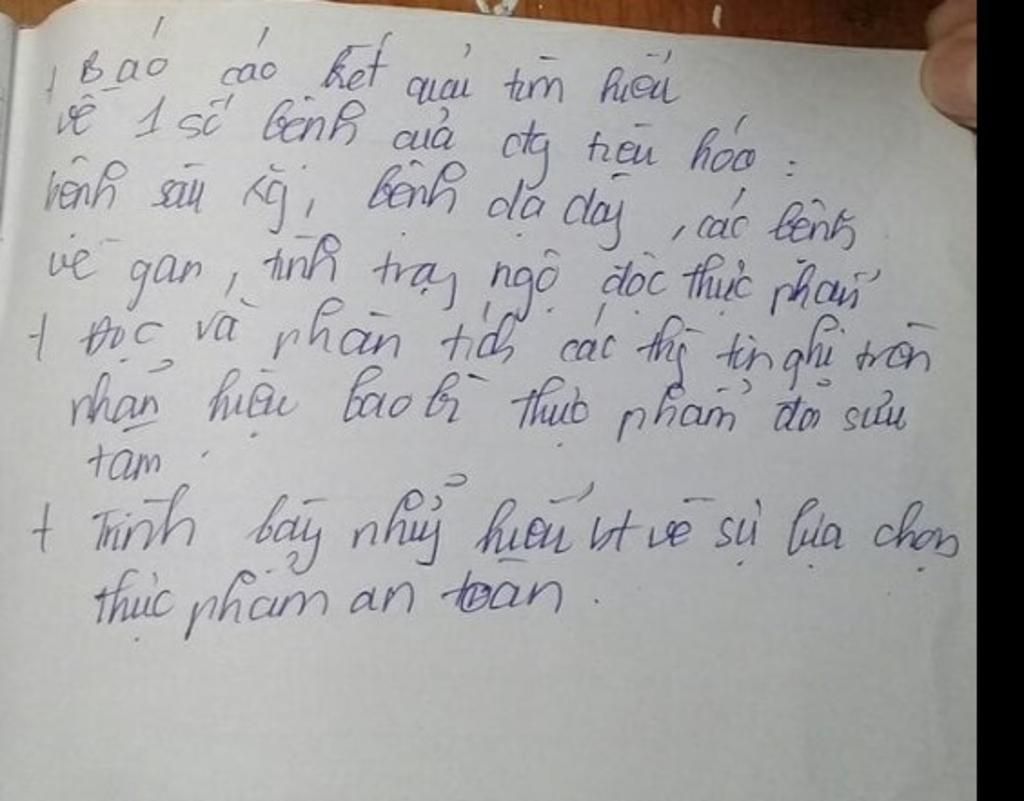 + Báo cáo kết quả tìm hiểu
về 1 số bệnh của đtg tiêu hóa :
bệnh sâu rg, bệnh dạ dày, các bệnh
về gan, tình trạg ngộ độc thực phẩm
+ Đọc và phân tích các thg tin ghi trên
nhãn hiệu bao bì thực phẩm đã sưu
tầm.
+ Trình bày nhữg hiểu bt về sự lựa chọn
thực phẩm an toàn.